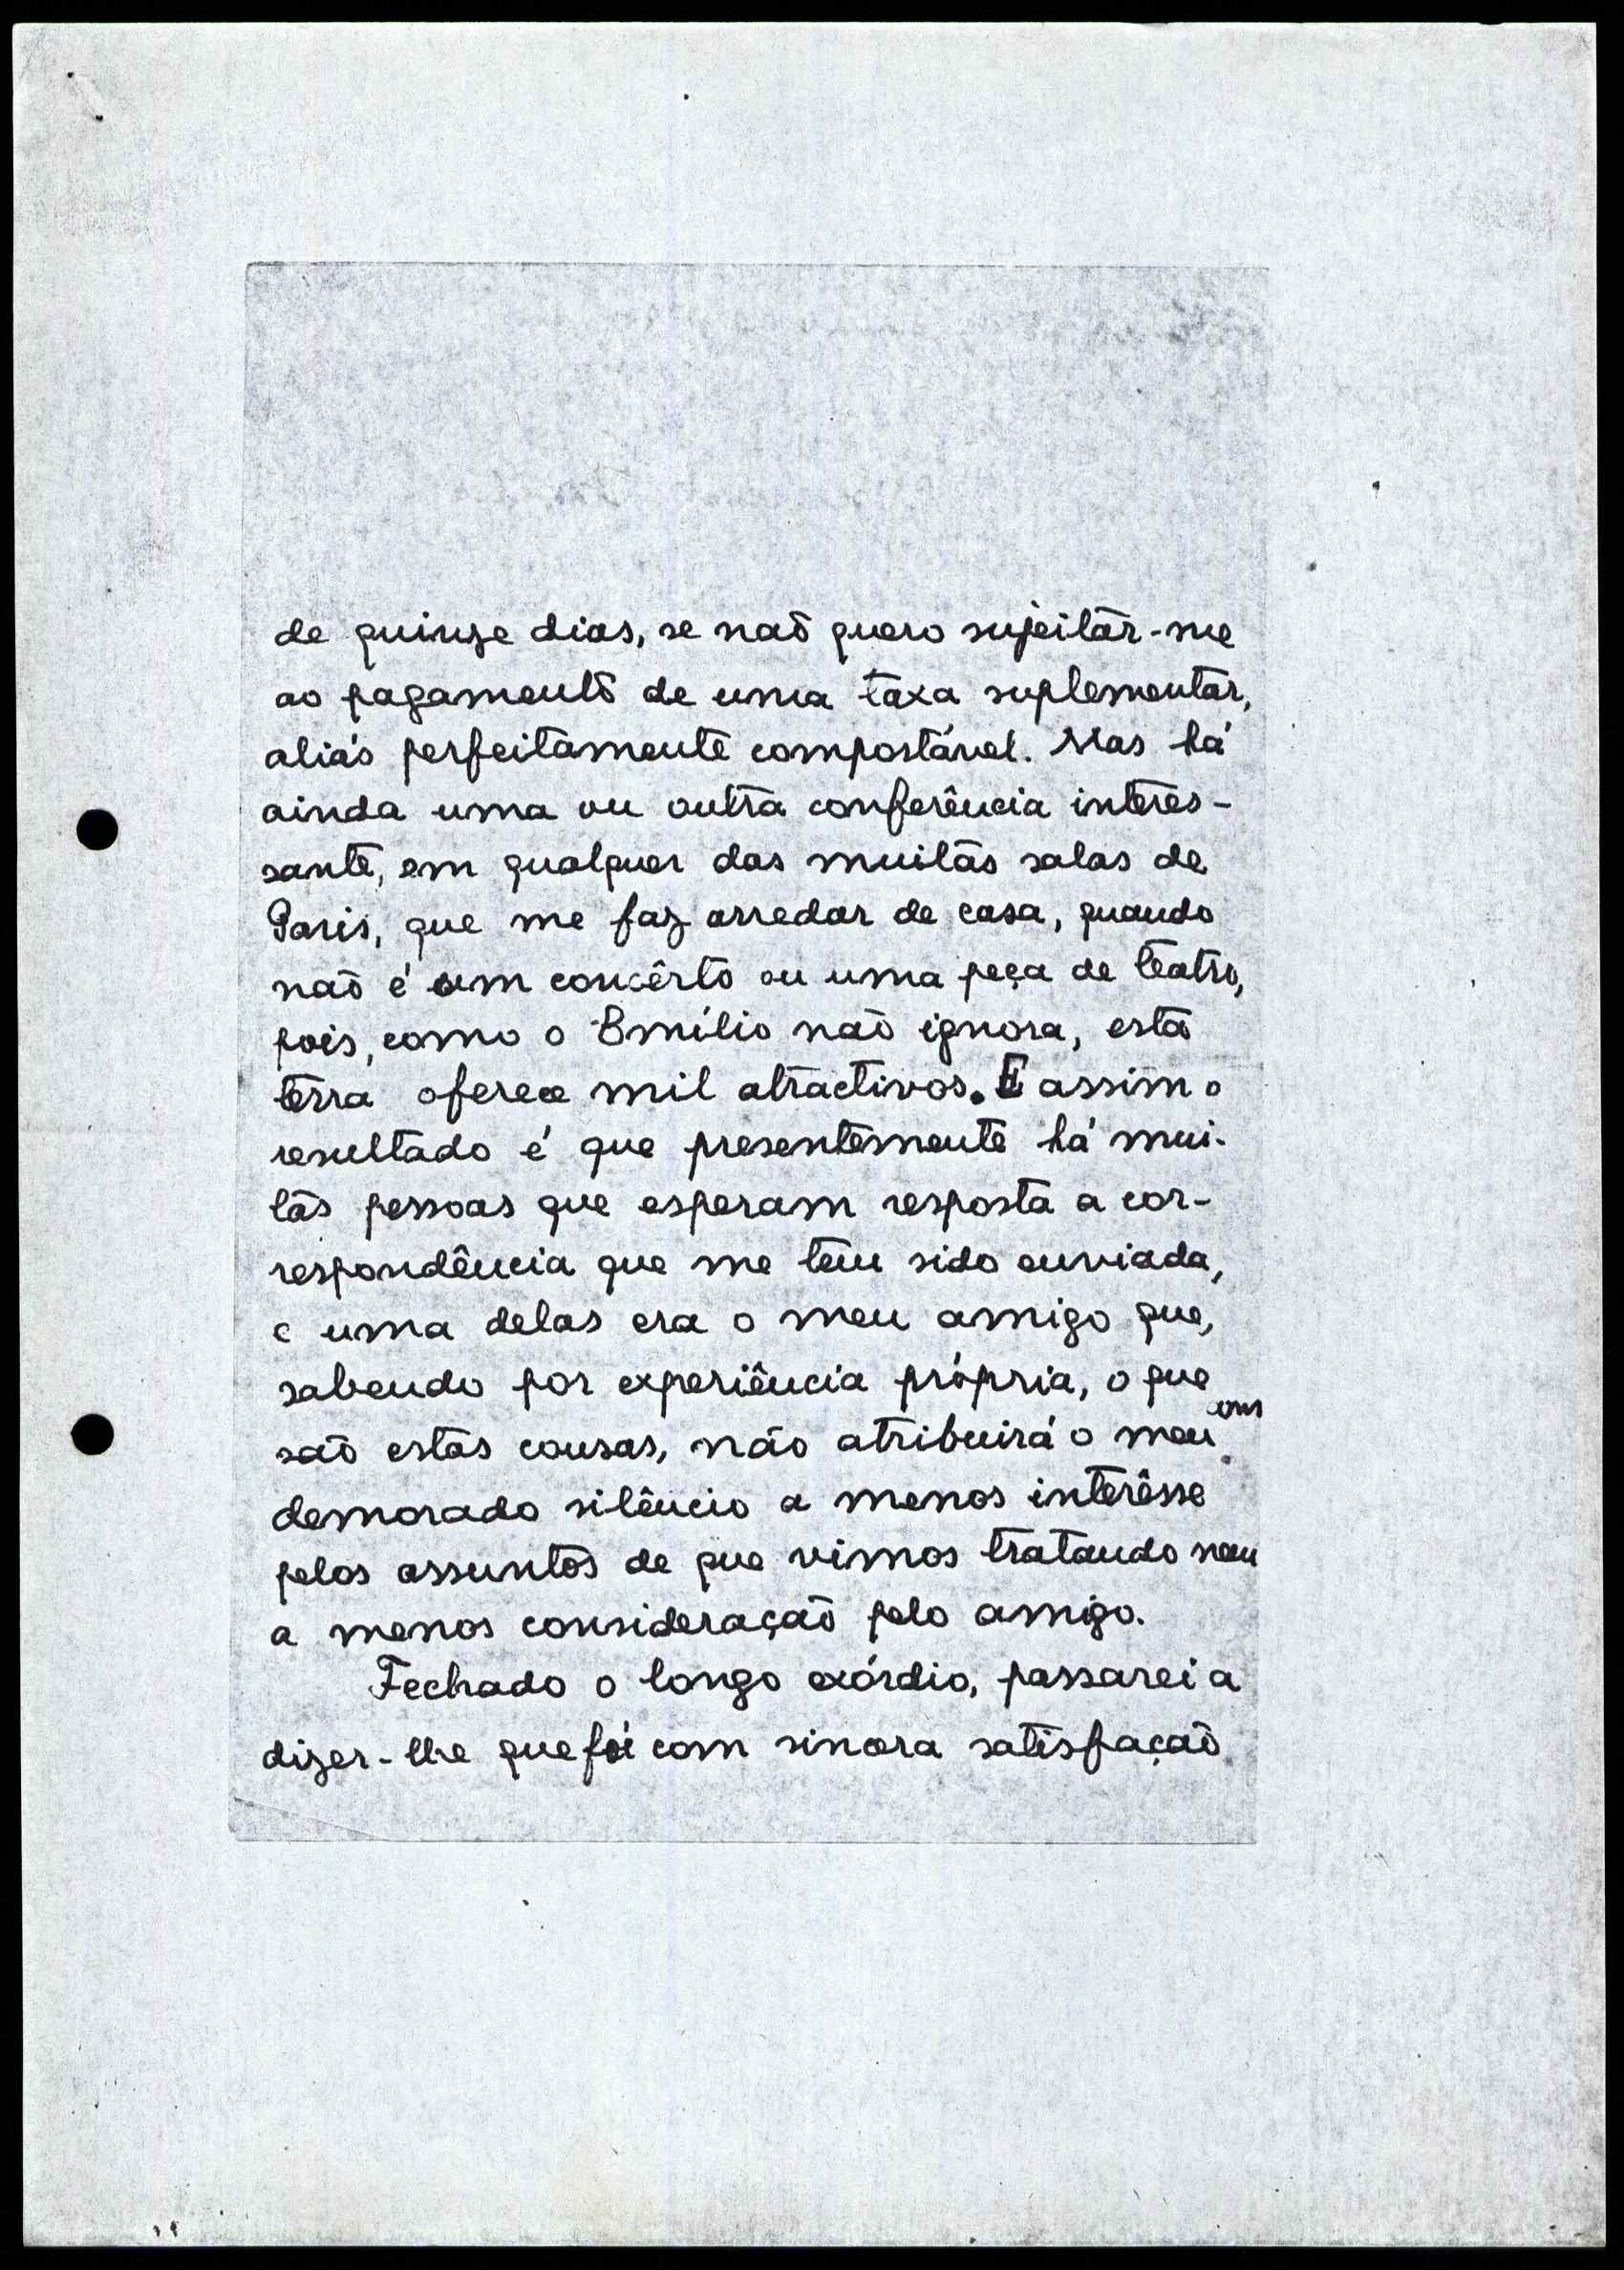 de quinze dias, se não quero sujeitar-me
ao pagamento de uma taxa suplementar,
aliás perfeitamente comportável. Mas há
ainda uma ou outra conferência interes-
sante, em qualquer das muitas salas de
Paris, que me faz arredar de casa, quando
não é um concêrto ou uma peça de teatro,
pois, como o Emílio não ignora, esta
terra oferece mil atractivos. E assim o
resultado é que presentemente há mui-
tas pessoas que esperam resposta a cor-
respondência que me tem sido enviada,
e uma delas era o meu amigo que,
sabendo por experiência própria, o que
são estas cousas, não atribuirá o meu
demorado silêncio a menos interêsse
pelos assuntos de que vimos tratando nem
a menos consideração pelo amigo.
Fechado o longo exórdio, passarei a
dizer-lhe que foi com sincera satisfação